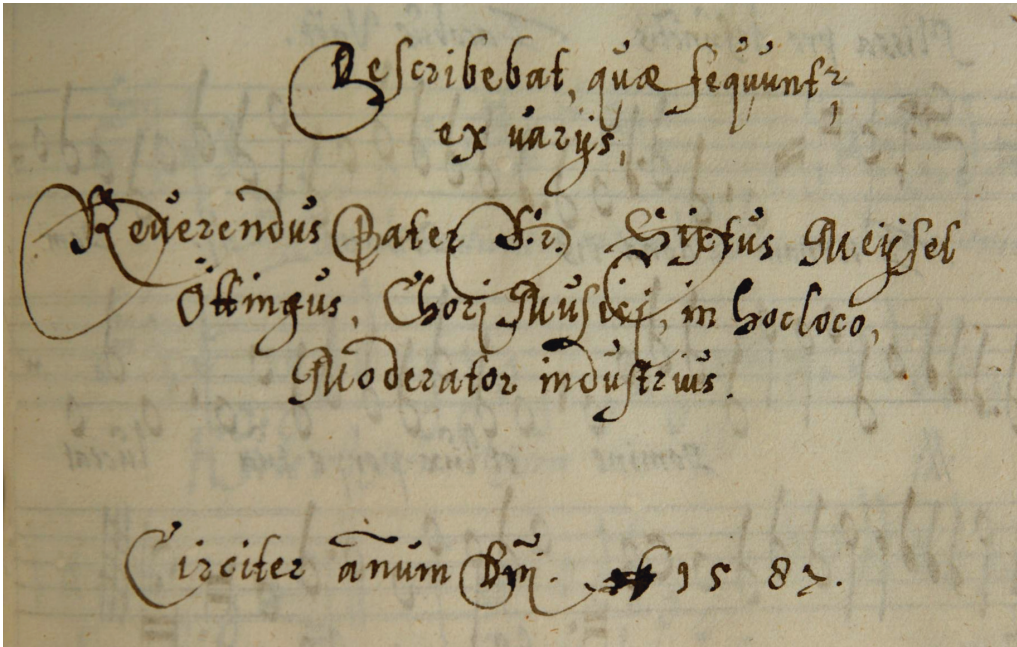 Describebat, quæ sequunt͛
ex varijs,
Reverendus Pater Fr. Sixtus Meijsel
Öttingus, Chori Musici, in hoc loco,
Moderator industrius.
Circiter añum Dñi. 1587.